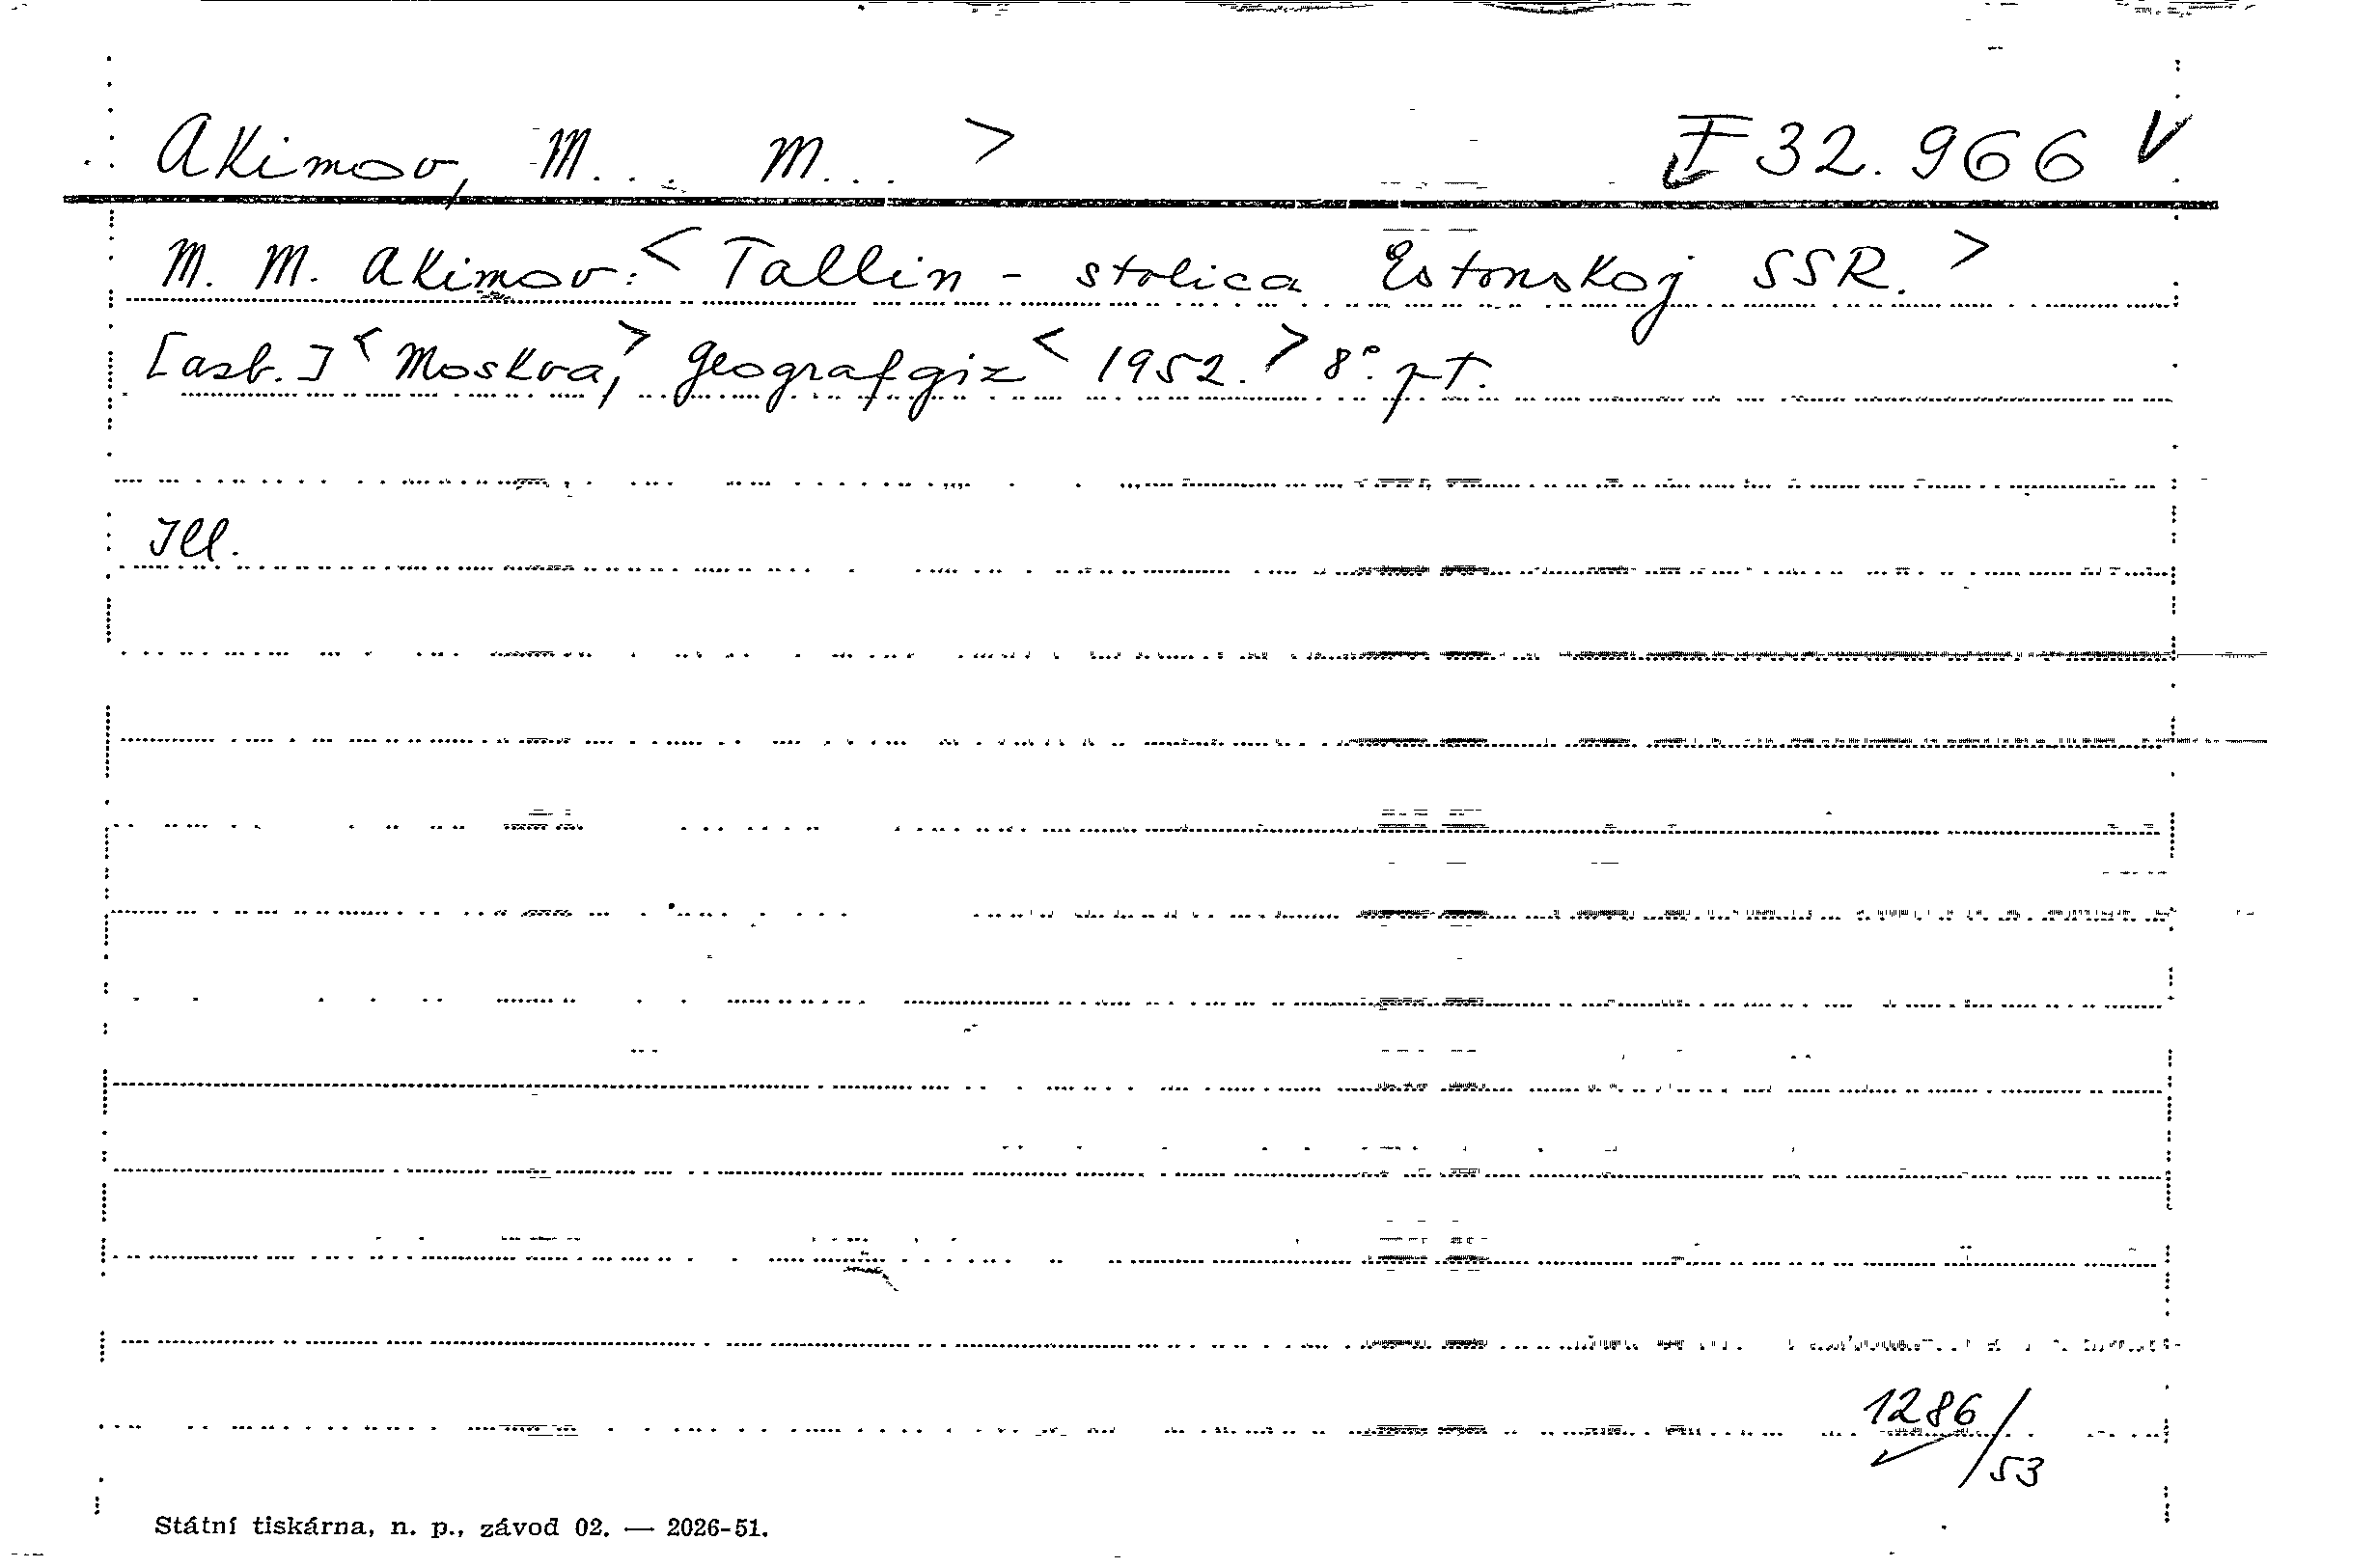 Akimov, M... M... > I 32.966 V
M. M. Akimov: < Tallin - stolica Estonskoj SSR. >
[azb.] < Moskva, > Geografgiz < 1952. > 8°. pt.
Ill.
1286/53
Státní tiskárna, n. p., závod 02. — 2026-51.